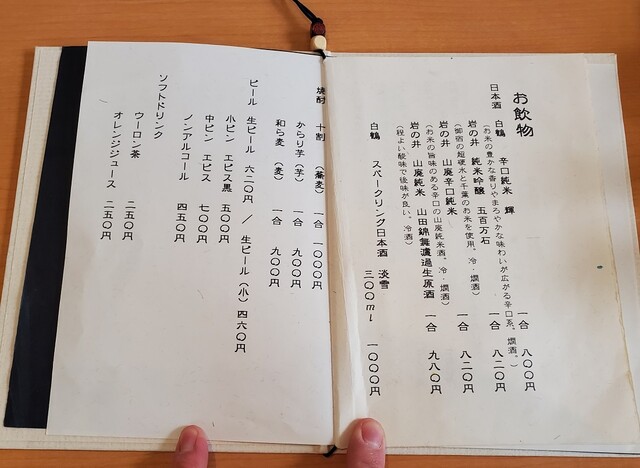 お飲物
日本酒
白鶴　辛口純米　輝　一合　八〇〇円
（お米の豊かな香りやまろやかな味わいが広がる辛口系。燗酒。）
岩の井　純米吟醸　五百万石　一合　八二〇円
（御宿の超硬水と千葉のお米を使用。冷・燗酒）
岩の井　山廃辛口純米　一合　八二〇円
（お米の旨味のある辛口の山廃純米酒。冷・燗酒）
岩の井　山廃純米　山田錦無濾過生原酒　一合　九八〇円
（程よい酸味で後味が良い。冷酒）
白鶴　スパークリング日本酒　淡雪　三〇〇ml　一〇〇〇円
焼酎　十割　（蕎麦）　一合　一〇〇〇円
からり芋（芋）　一合　九〇〇円
和ら麦（麦）　一合　九〇〇円
ビール　生ビール　六二〇円　／　生ビール（小）四六〇円
小ビン　エビス黒　五〇〇円
中ビン　エビス　七〇〇円
ノンアルコール　四五〇円
ソフトドリンク
ウーロン茶　二五〇円
オレンジジュース　二五〇円